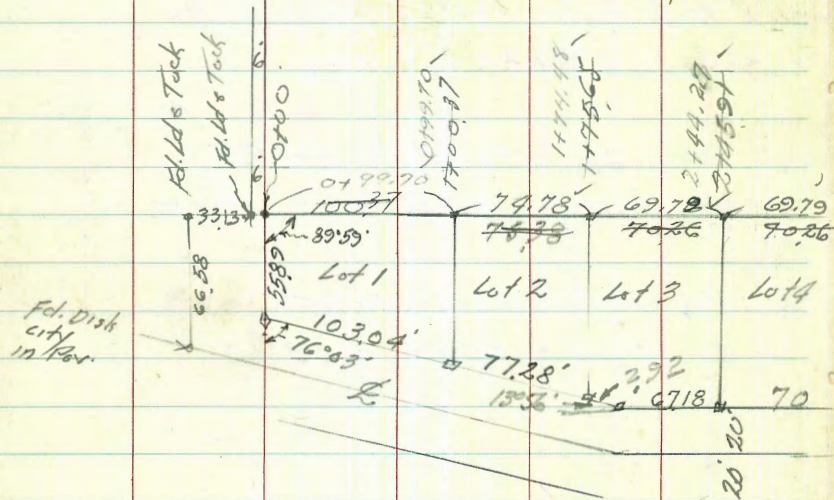 Fd. Ld & Tack
Fd. Ld & Tack
6'
6'
0+00
0+99.70
1+00.37
1+74.48
1+75.65
2+44.27
2+45.91
0+99.70
33.13
100.37
74.78'
75.38
69.79
70.26
69.79
70.26
89°59'
66.58
55.89
Lot 1
Lot 2
Lot 3
Lot 4
Fd. Disk
City
in Pav.
103.04'
76°03'
77.28'
2.92
13°56'
67.18
70
20'
20'